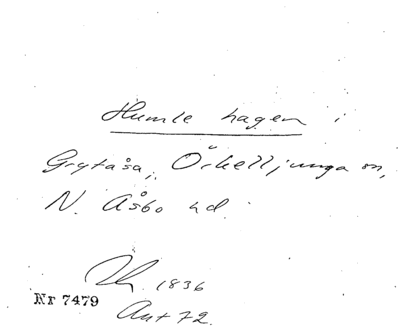 Humle hagen i
Grytåsa, Örkelljunga sn,
N. Åsbo hd.
1836
Nr 7479
Ant 72.